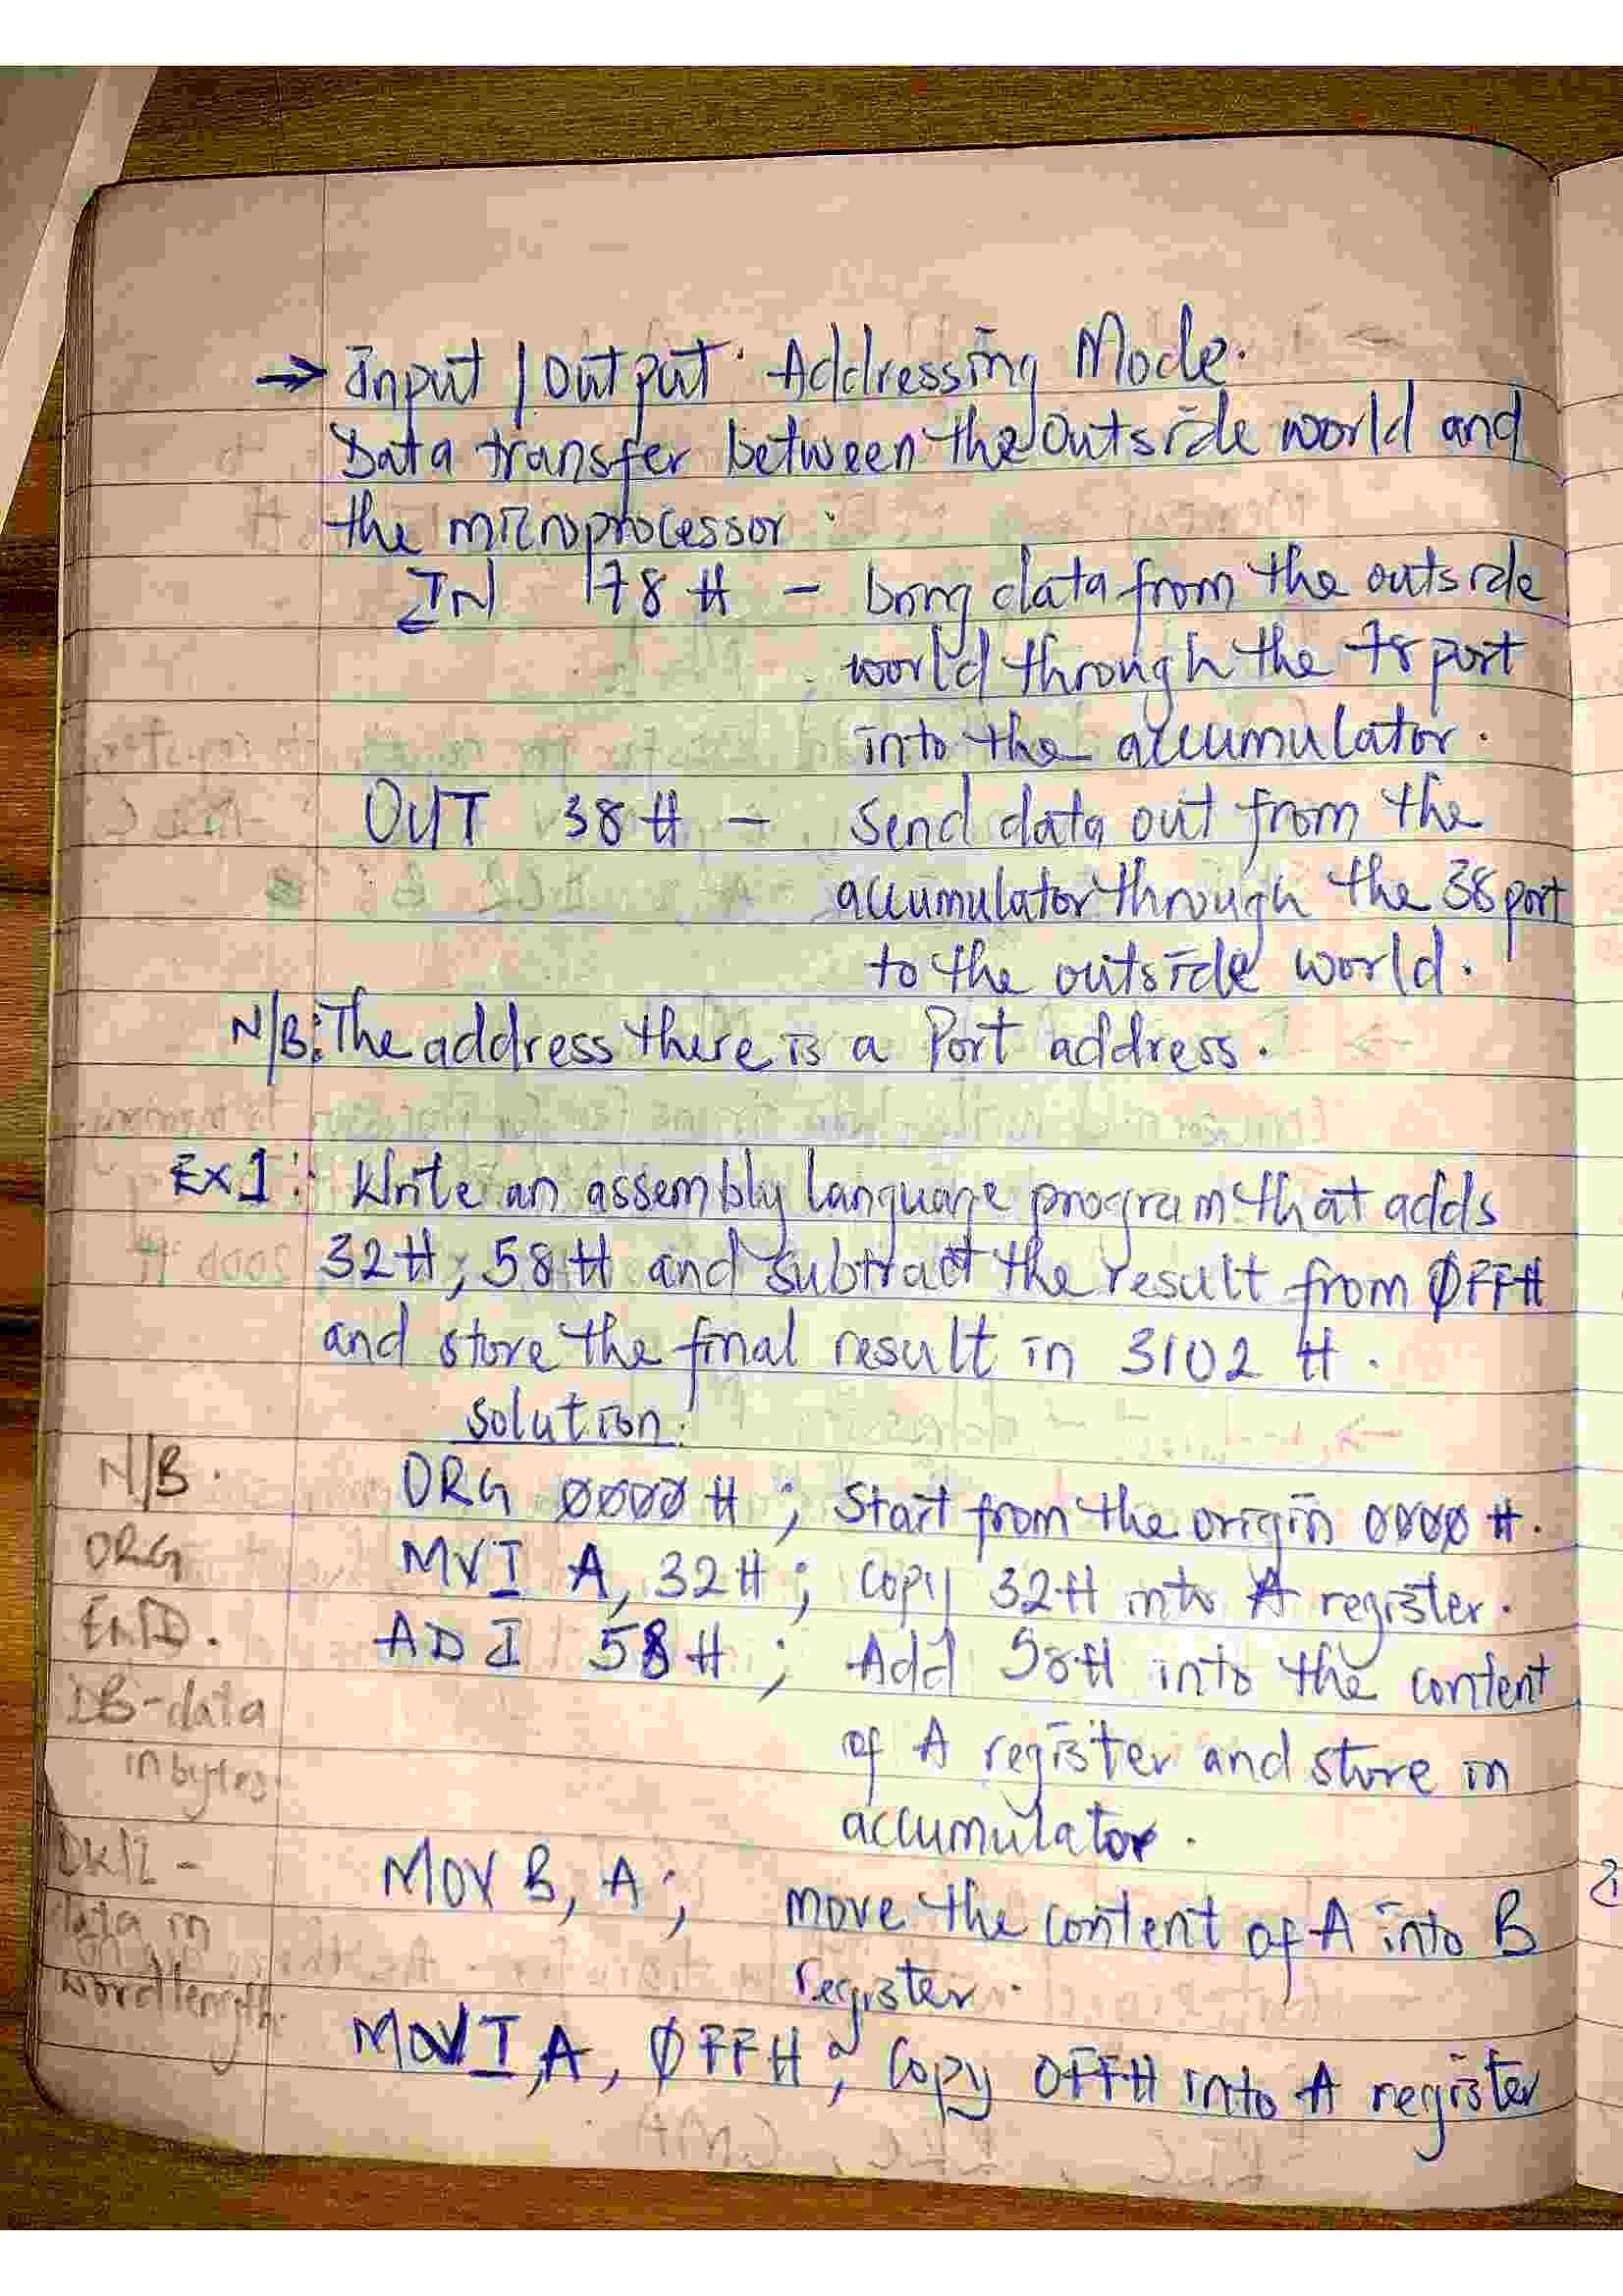 → Input / Output Addressing Mode.
Data transfer between the outside world and
the microprocessor.
IN 78H - bring data from the outside
world through the 78 port
into the accumulator.
OUT 38H - Send data out from the
accumulator through the 38 port
to the outside world.
N/B: The address there is a Port address.
Ex1: Write an assembly language program that adds
32H, 58H and subtract the result from ØFFH
and store the final result in 3102 H.
Solution:
N/B. ORG ØØØØ H ; Start from the origin ØØØØ H.
ORG MVI A, 32H ; Copy 32H into A register.
END. ADI 58H ; Add 58H into the content
DB-data
of A register and store in
in bytes.
accumulator.
MOV B, A ; move the content of A into B
data in
register.
word length.
MOVI,A, ØFFH ; Copy OFFH into A register